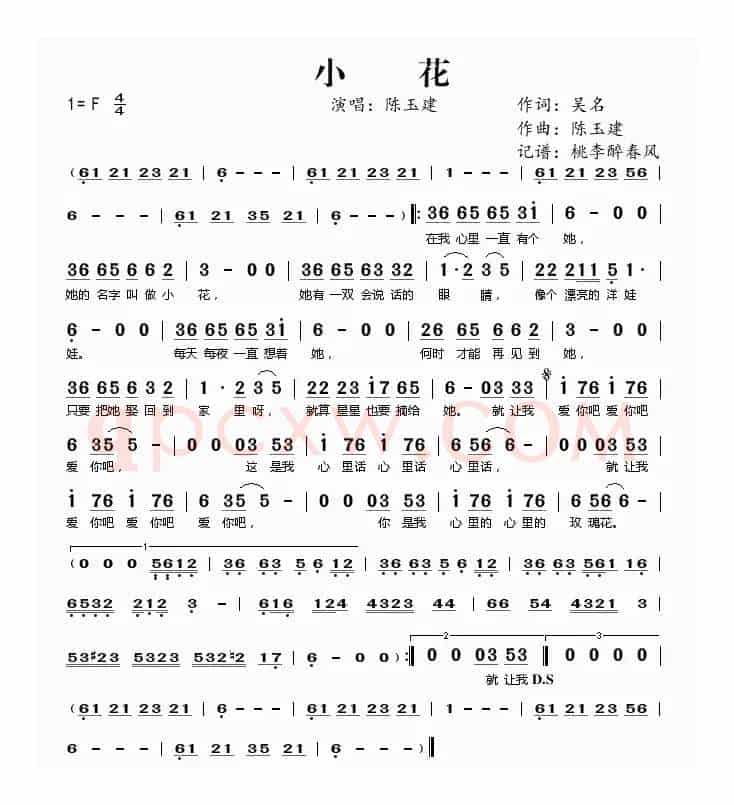 小 花
1=F 4/4 演唱：陈玉建 作词：吴名
作曲：陈玉建
记谱：桃李醉春风
(61 21 23 21 | 6 - - - | 61 21 23 21 | 1 - - - | 61 21 23 56 |
6 - - - | 61 21 35 21 | 6 - - -) ‖: 36 65 65 31 | 6 - 0 0 |
在我 心里 一直 有个 她，
36 65 6 6 2 | 3 - 0 0 | 36 65 63 32 | 1·2 3 5 | 22 211 5 3 |
她的 名字 叫 做 小 花， 她有 一双 会说 话的 眼 睛， 像个 漂亮的 洋 娃
6 - 0 0 | 36 65 65 31 | 6 - 0 0 | 26 65 6 6 2 | 3 - 0 0 |
娃。 每天 每夜 一直 想着 她， 何时 才能 再 见 到 她，
36 65 6 6 2 | 1· 2 3 5 | 22 23 17 65 | 6 - 03 33 | 1 76 1 76 |
只要 把她 娶 回 到 家 里 呀， 就算 星星 也要 摘给 她。 就 让我 爱 你吧 爱 你吧
6 35 5 - | 0 0 03 53 | 1 76 1 76 | 6 56 6 - | 0 0 03 53 |
爱 你吧， 这 是我 心 里话 心 里话 心 里话， 就 让我
1 76 1 76 | 6 35 5 - | 0 0 03 53 | 1 76 1 76 | 6 56 6 - |
爱 你吧 爱 你吧 爱 你吧， 你 是我 心 里的 心 里的 玫 瑰花。
1
(0 0 0 5612 | 36 63 5 6 12 | 36 63 5 6 12 | 36 63 561 16 |
6532 212 3 - | 616 124 4323 44 | 66 54 4321 3 |
53#23 5323 532♮2 17 | 6 - 0 0) :‖ 2 0 0 03 53 ‖ 3 0 0 0 0 |
就 让我 D.S
(61 21 23 21 | 6 - - - | 61 21 23 21 | 1 - - - | 61 21 23 56 |
6 - - - | 61 21 35 21 | 6 - - -) ‖
qpcxw.COM